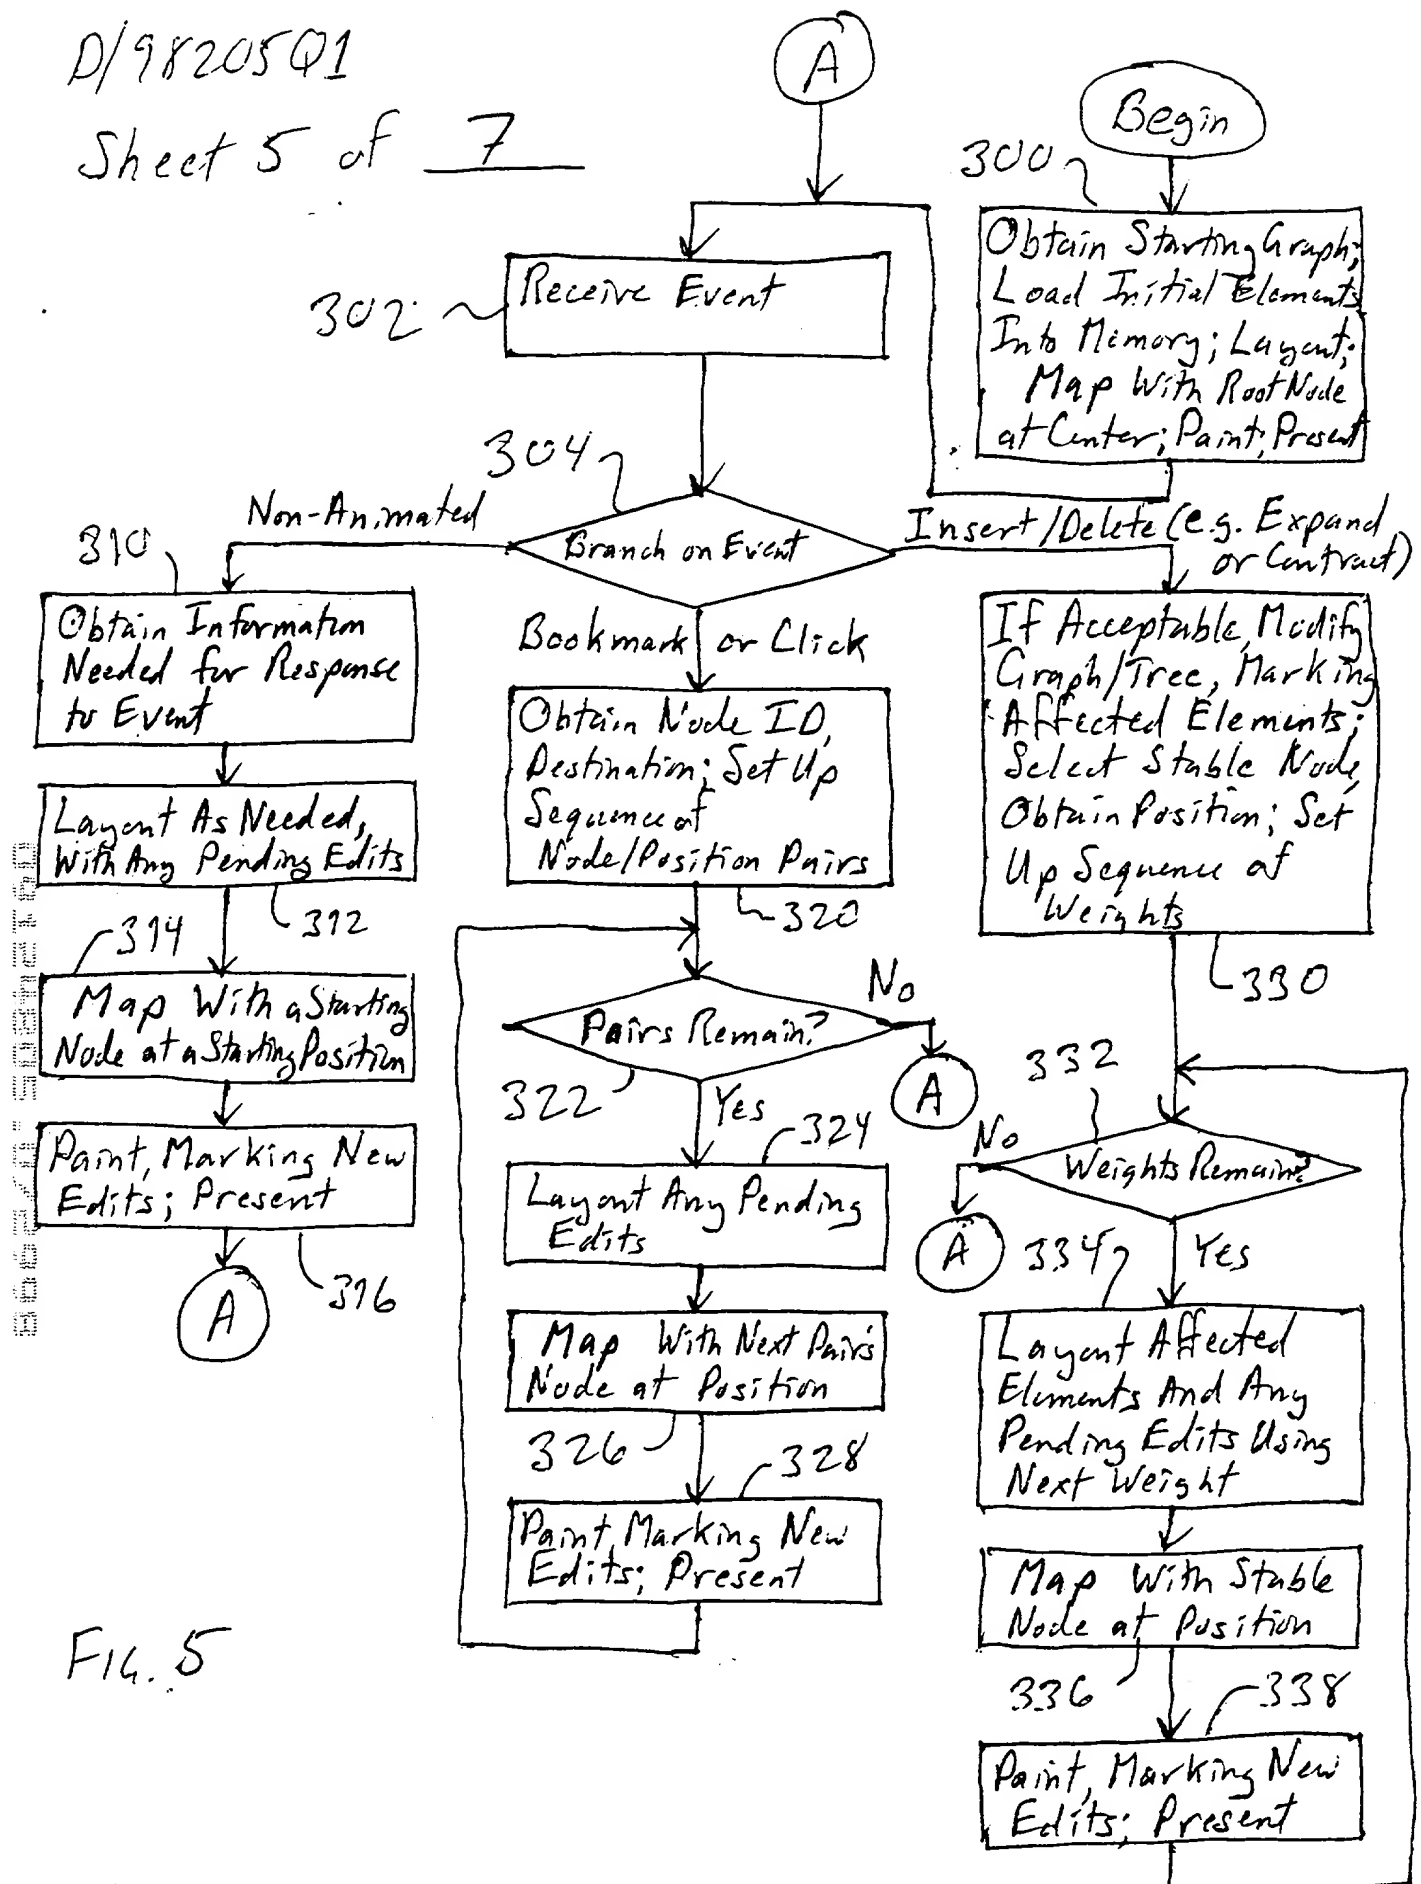 D/98205Q1
Sheet 5 of 7
A
Begin
300
Obtain Starting Graph;
Load Initial Elements
Into Memory; Layout;
Map With Root Node
at Center; Paint; Present
302
Receive Event
304
Branch on Event
Non-Animated
Insert/Delete (e.g. Expand
or Contract)
Bookmark or Click
310
Obtain Information
Needed for Response
to Event
Layout As Needed,
With Any Pending Edits
312
314
Map With a Starting
Node at a Starting Position
Paint, Marking New
Edits; Present
316
A
Obtain Node ID,
Destination; Set Up
Sequence of
Node/Position Pairs
320
Pairs Remain?
No
A
322
Yes
324
Layout Any Pending
Edits
Map With Next Pair's
Node at Position
326
328
Paint, Marking New
Edits; Present
If Acceptable, Modify
Graph/Tree, Marking
Affected Elements;
Select Stable Node,
Obtain Position; Set
Up Sequence of
Weights
330
332
Weights Remain?
No
A
334
Yes
Layout Affected
Elements And Any
Pending Edits Using
Next Weight
Map With Stable
Node at Position
336
338
Paint, Marking New
Edits; Present
FIG. 5